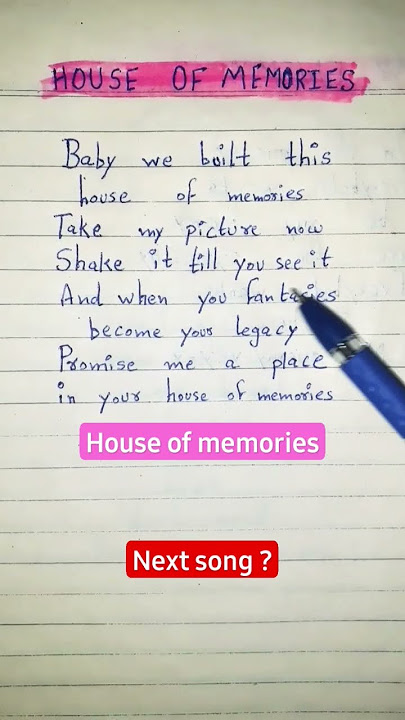 HOUSE OF MEMORIES
Baby we built this
house of memories
Take my picture now
Shake it till you see it
And when you fantasies
become your legacy
Promise me a place
in your house of memories
House of memories
Next song ?